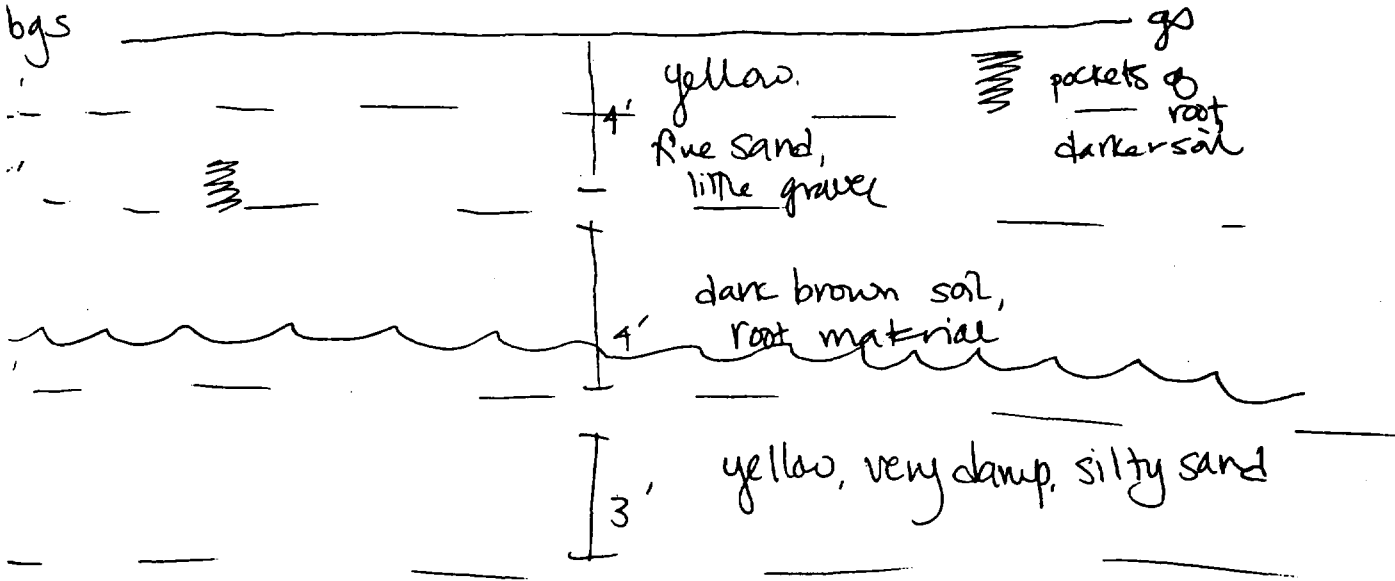 bgs
gs
yellow.
4'
fine sand,
little gravel
pockets of
root,
darker soil
dark brown soil,
4'
root material
yellow, very damp, silty sand
3'